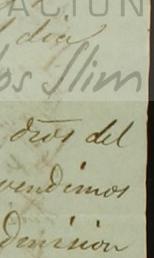 ACION
dia
os Slim
dros del
vendimos
dmision